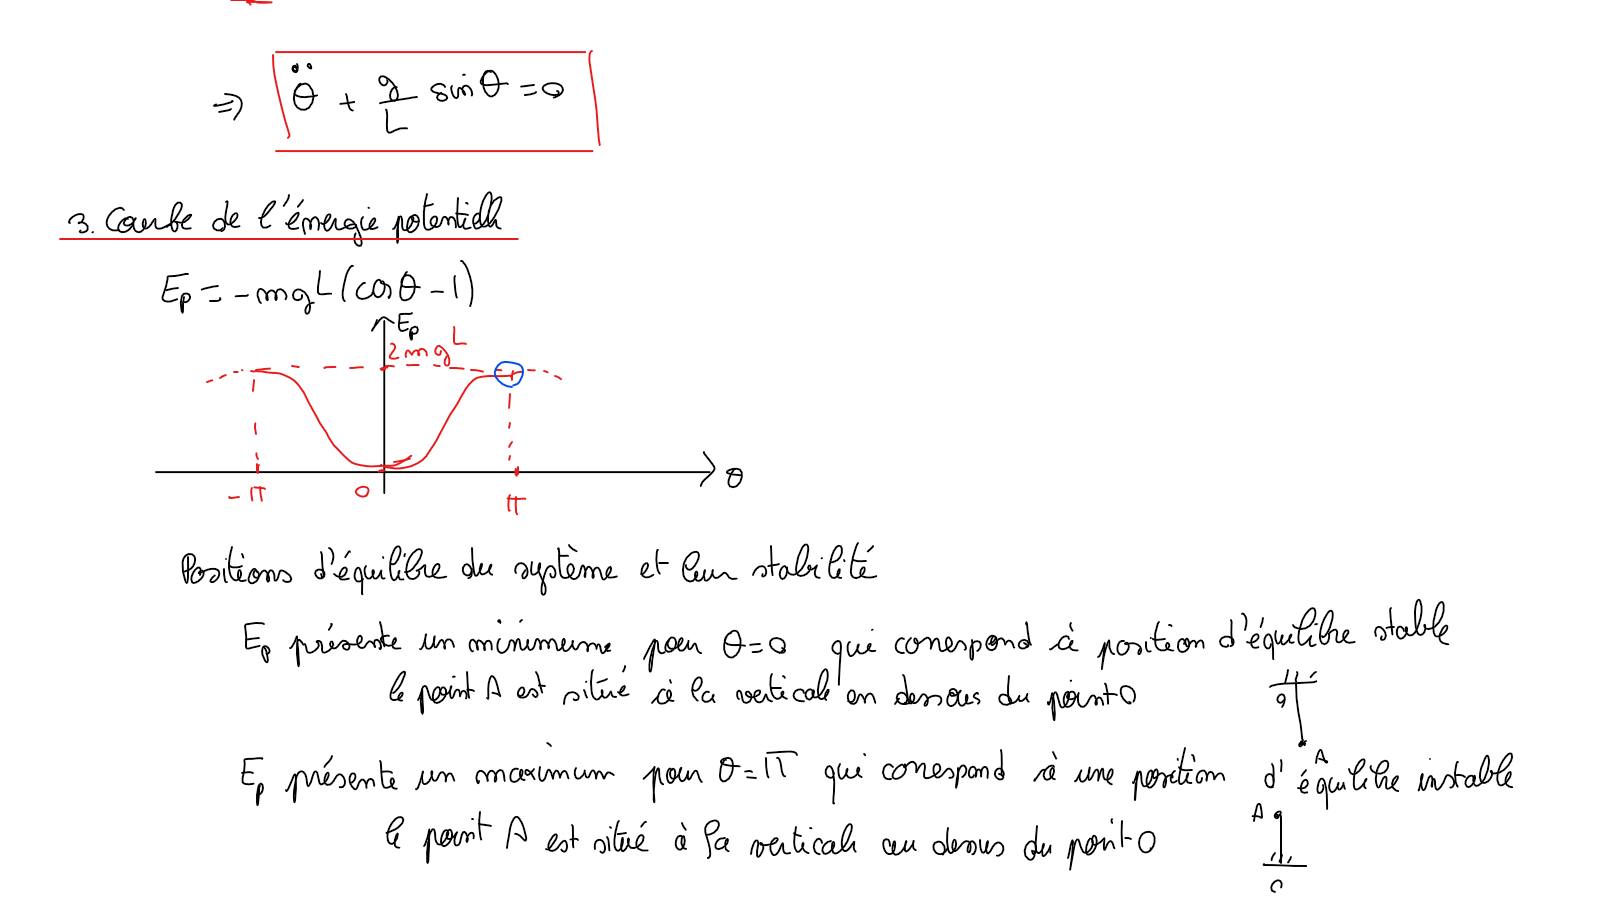 ⇒ θ̈ + g/L sin θ = 0
3. Courbe de l'énergie potentielle
Ep = - mgL (cos θ - 1)
Ep
2mgL
θ
- π 0 π
Positions d'équilibre du système et leur stabilité
Ep présente un minimum pour θ = 0 qui correspond à position d'équilibre stable
le point A est situé à la verticale en dessous du point O
O
A
Ep présente un maximum pour θ = π qui correspond à une position d'équilibre instable
le point A est situé à la verticale au dessus du point O
A
O